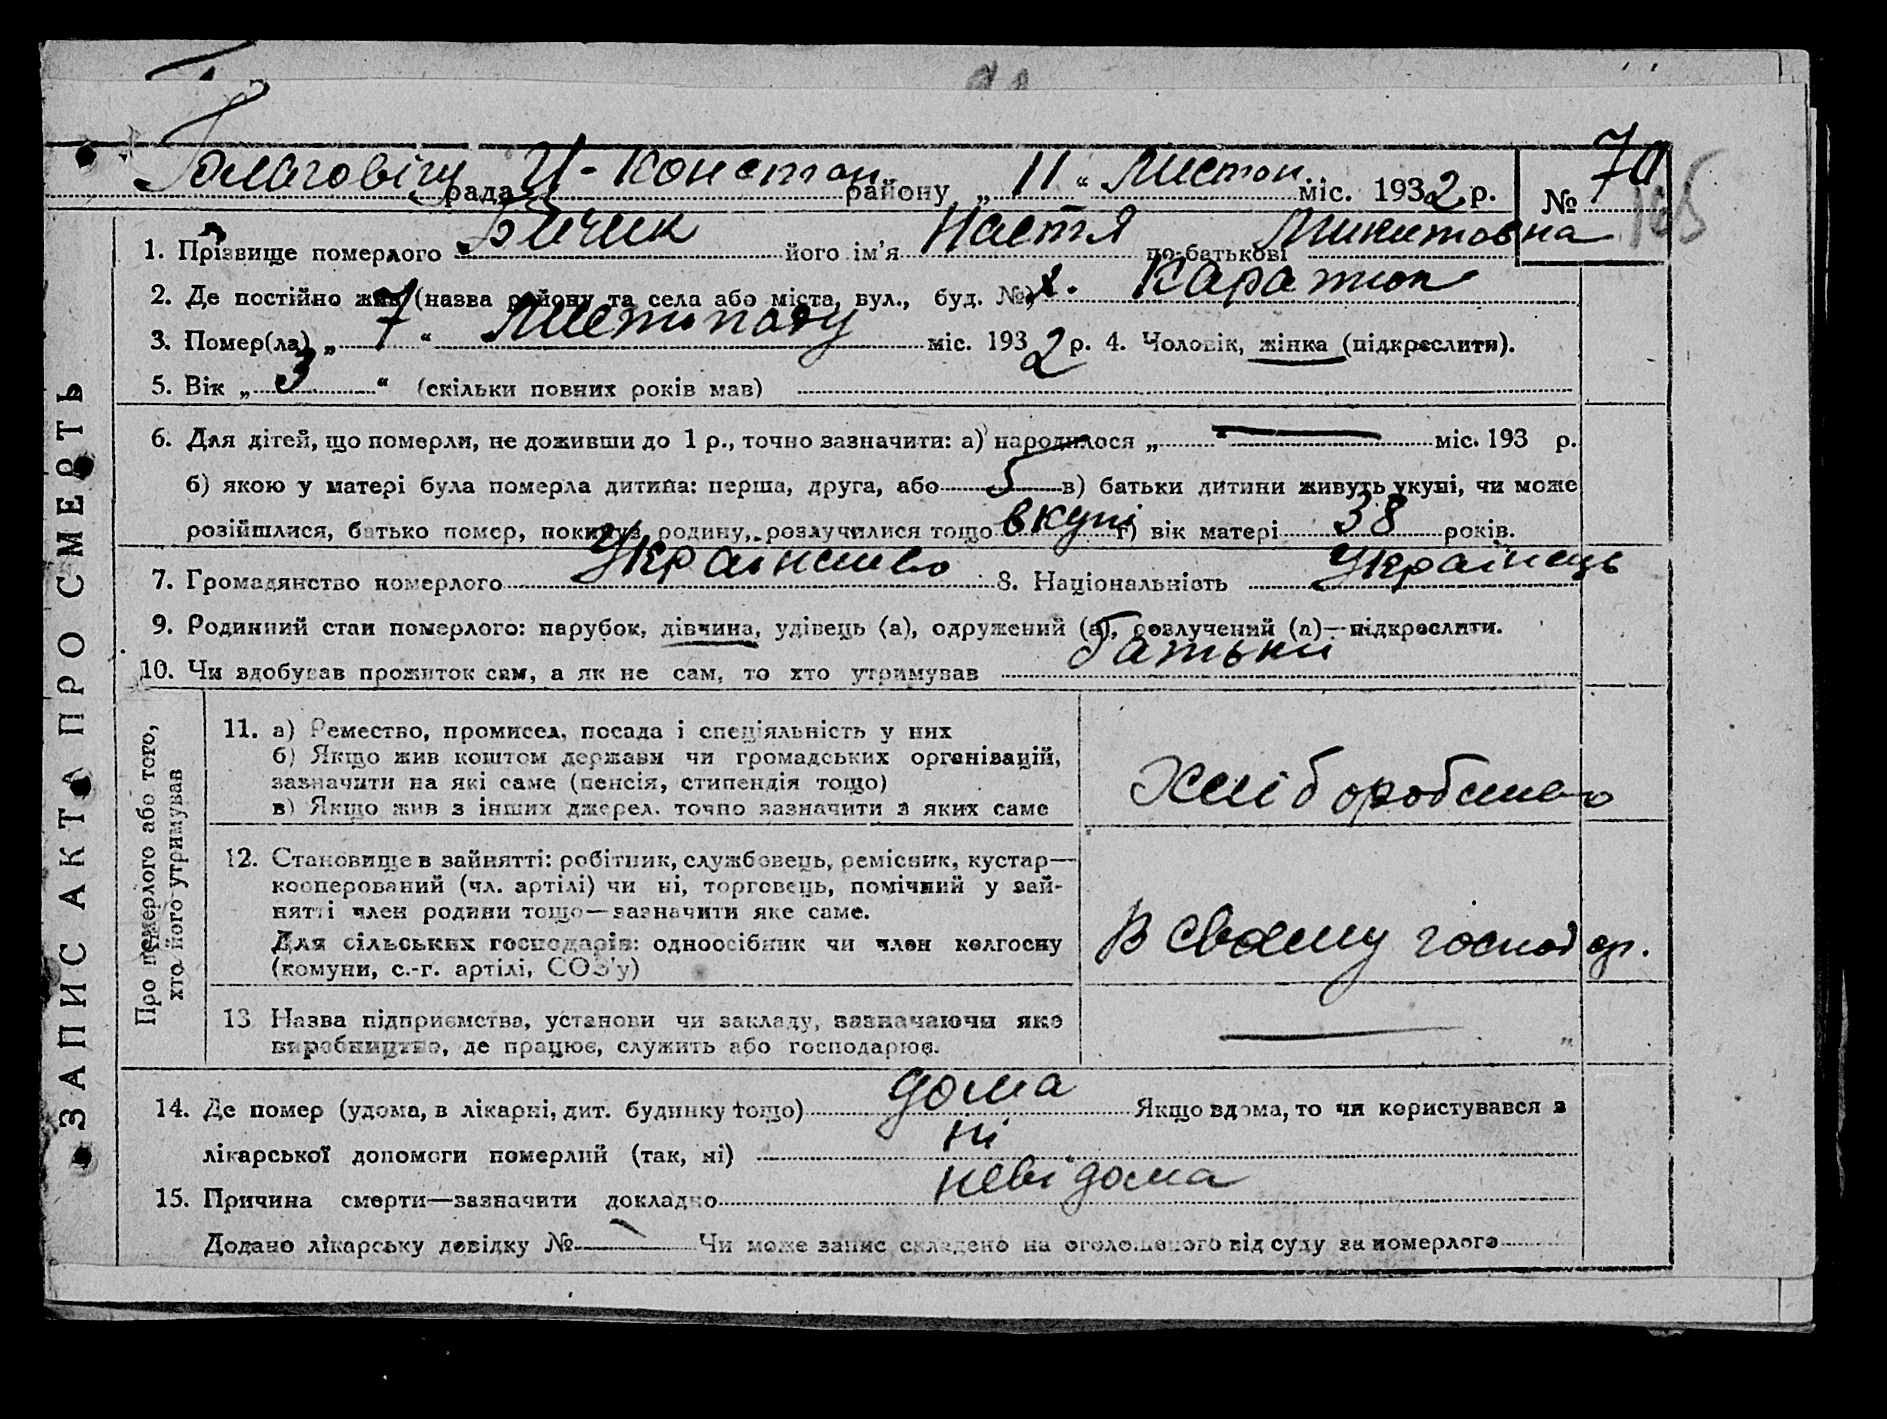 Благовіщ рада Н-Констан району „ 11 “ Листоп міс. 1932 р. № 70
165
1. Прізвище померлого Бичик його ім'я Настя по-батькові Микитовна
2. Де постійно жив (назва району та села або міста, вул., буд. №) х.
3. Помер(ла) „ 7 “ Листопаду міс. 1932 р. 4. Чоловік, жінка (підкреслити).
5. Вік „ 3 “ (скільки повних років мав)
6. Для дітей, що померли, не доживши до 1 р., точно зазначити: а) народилося „ “ — міс. 193 р.
б) якою у матері була померла дитина: перша, друга, або 5 в) батьки дитини живуть укупі, чи може
розійшлися, батько помер, покинув родину, розлучилися тощо вкупі г) вік матері 38 років.
7. Громадянство померлого Українство 8. Національність Українець
9. Родинний стан померлого: парубок, дівчина, удівець (а), одружений (а), розлучений (а)—підкреслити.
10. Чи здобував прожиток сам, а як не сам, то хто утримував батьки
ЗАПИС АКТА ПРО СМЕРТЬ
Про померлого або того,
хто його утримував
11. а) Ремество, промисел, посада і спеціяльність у них
б) Якщо жив коштом держави чи громадських організацій,
зазначити на які саме (пенсія, стипендія тощо)
в) Якщо жив з інших джерел. точно зазначити з яких саме
Хліборобство
12. Становище в зайнятті: робітник, службовець, ремісник, кустар—
кооперований (чл. артілі) чи ні, торговець, помічний у зай-
нятті член родини тощо—зазначити яке саме.
Для сільських господарів: одноосібник чи член колгоспу
(комуни, с.-г. артілі, СОЗ'у)
В своему господар.
13 Назва підприємства, установи чи закладу, зазначаючи яке
виробництво, де працює, служить або господарює. —
14. Де помер (удома, в лікарні, дит. будинку тощо) дома Якщо вдома, то чи користувався з
лікарської допомоги померлий (так, ні) ні
15. Причина смерти—зазначити докладно невідома
Додано лікарську довідку № — Чи може запис складено на оголошеного від суду за померлого